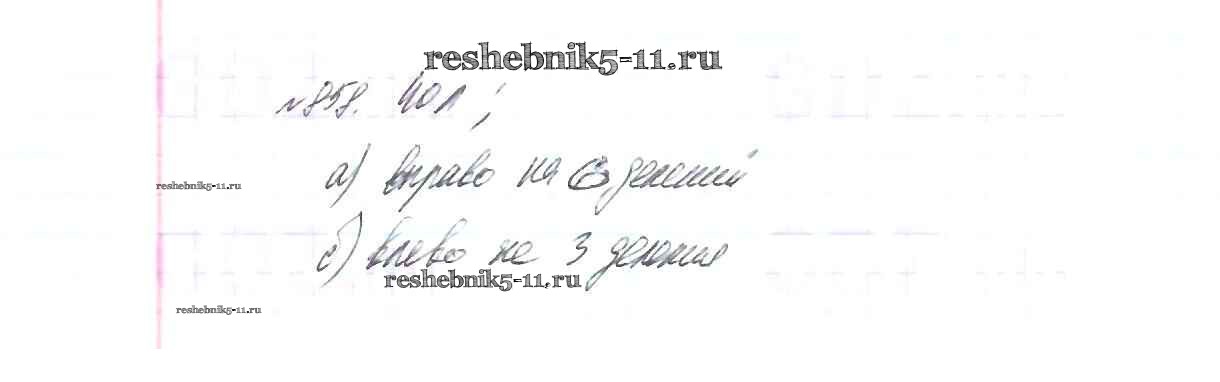 reshebnik5-11.ru
№858. 40 л;
а) вправо на 6 делений
reshebnik5-11.ru
б) влево на 3 деления
reshebnik5-11.ru
reshebnik5-11.ru